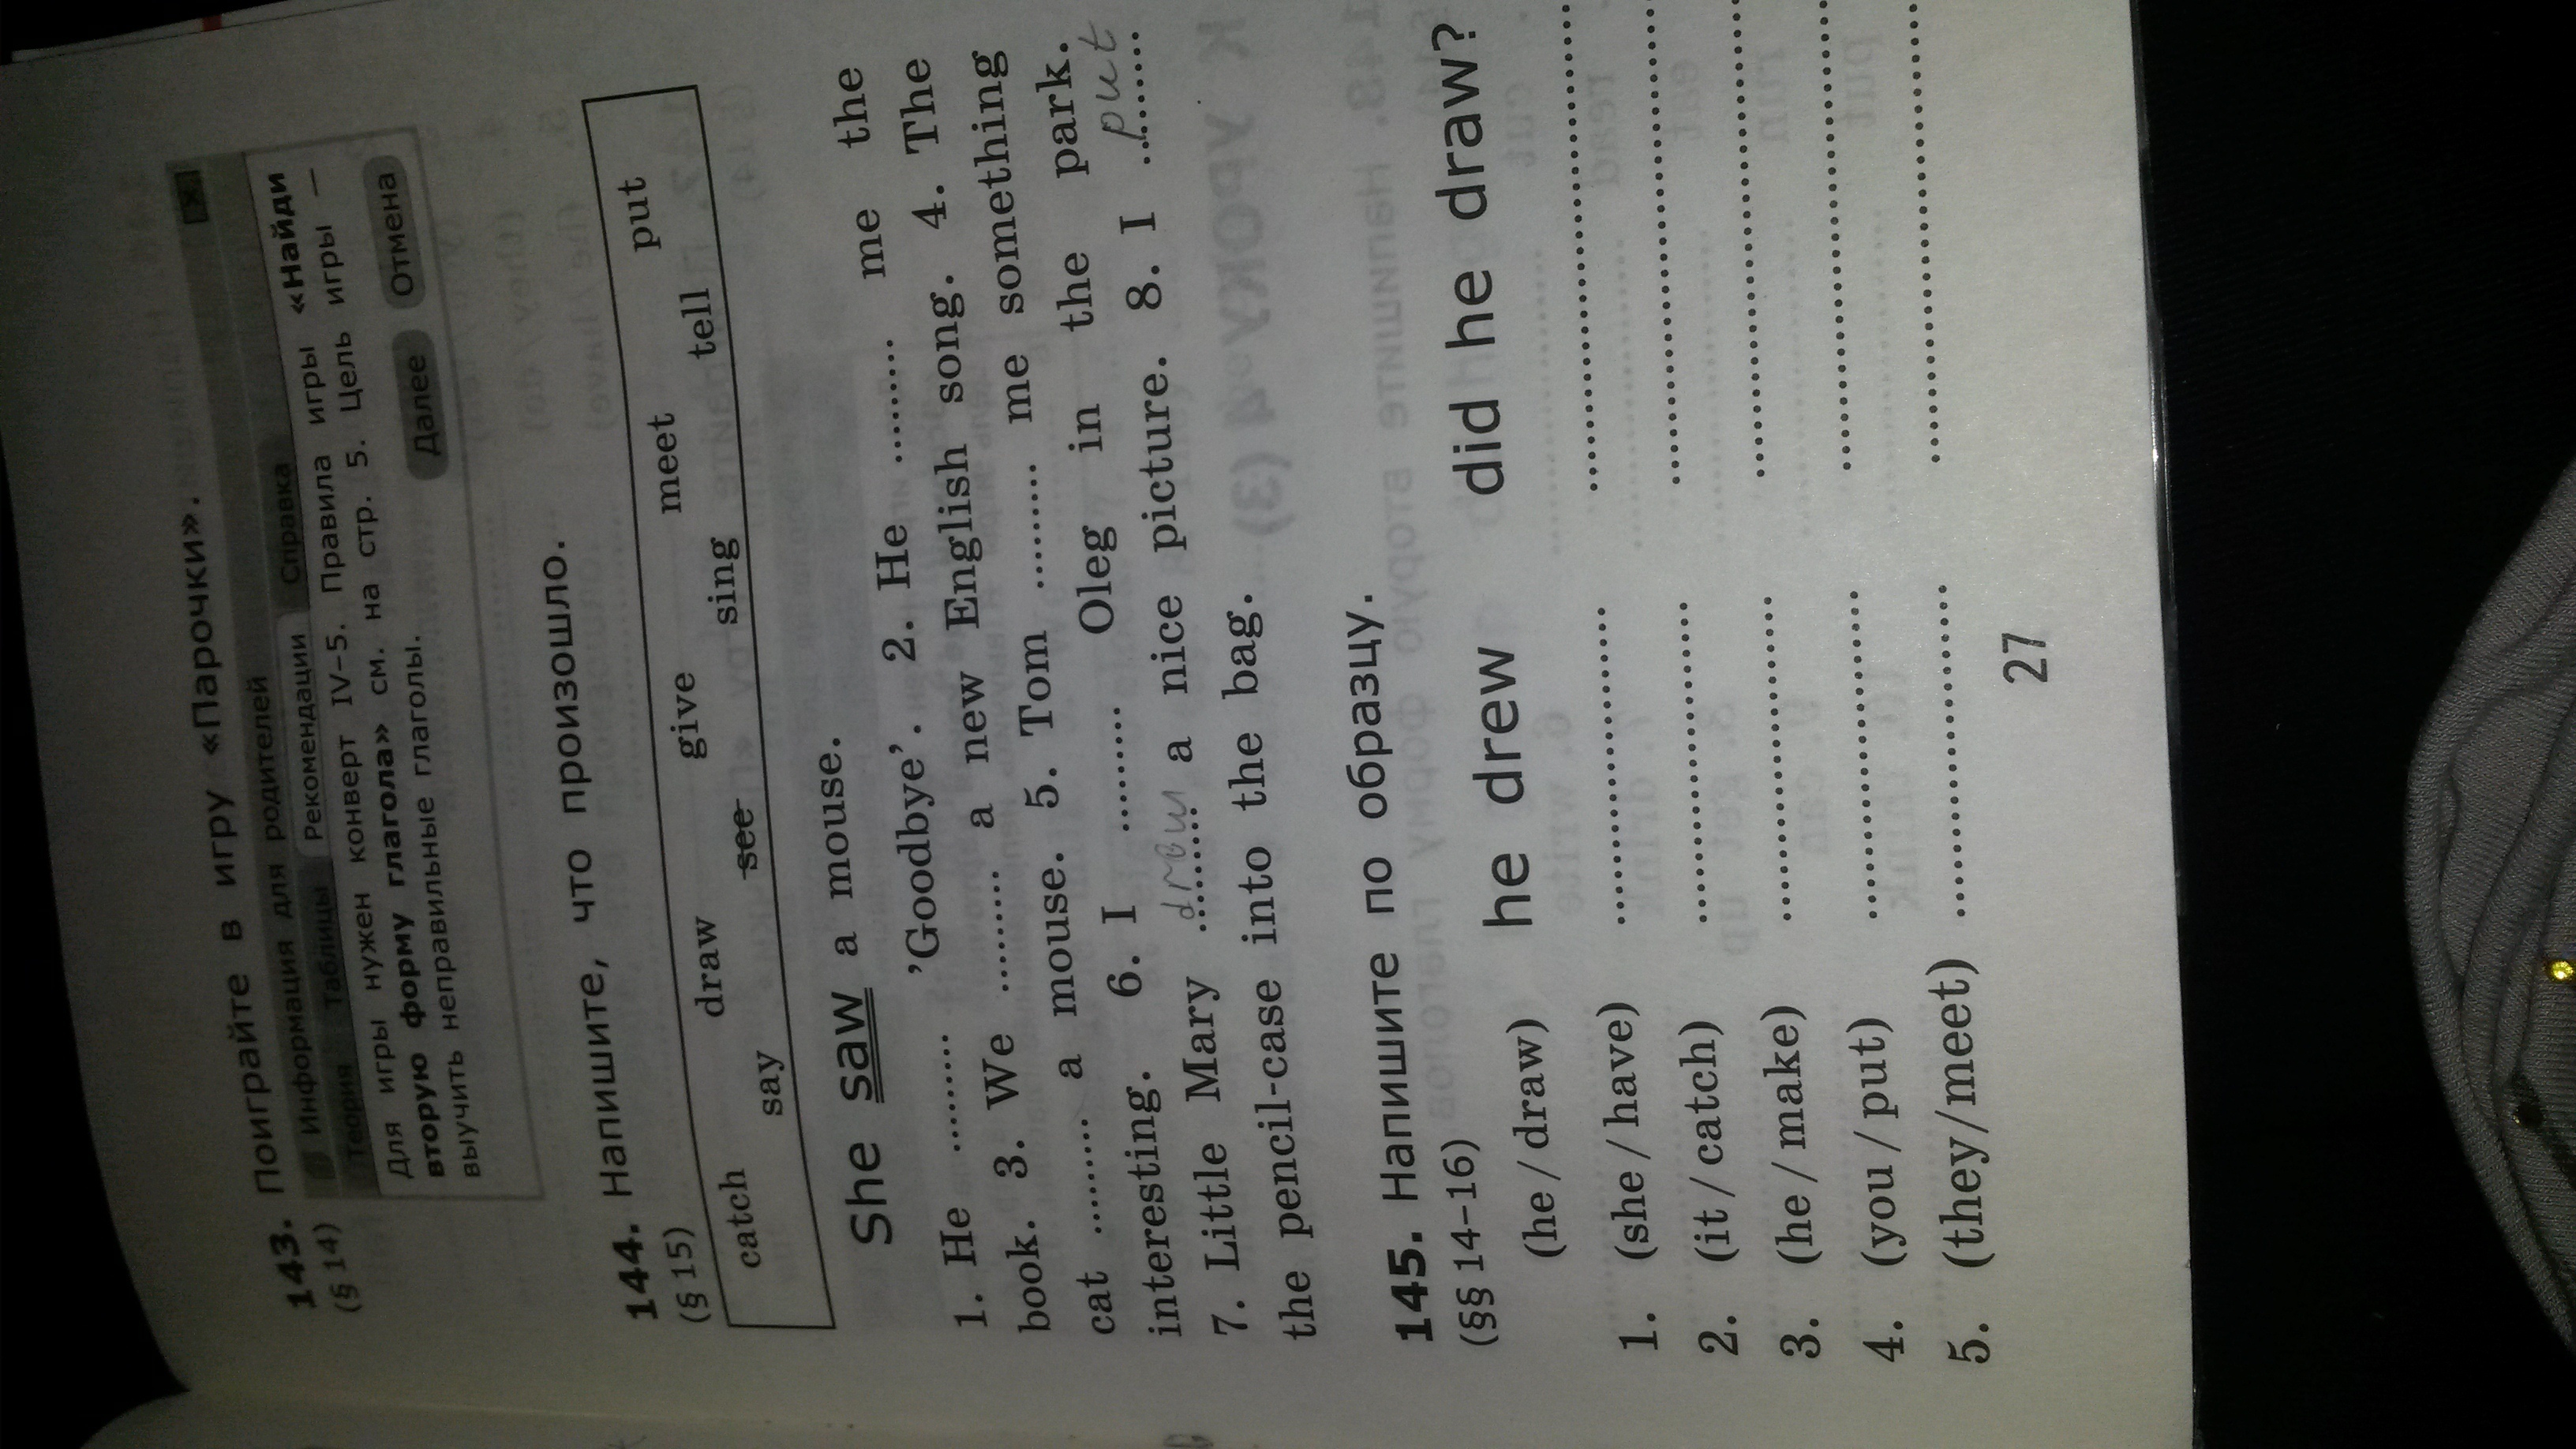 143. Поиграйте в игру «Парочки».
(§ 14)
Информация для родителей
Теория Таблицы Рекомендации Справка
Для игры нужен конверт IV–5. Правила игры «Найди
вторую форму глагола» см. на стр. 5. Цель игры —
выучить неправильные глаголы.
Далее Отмена
144. Напишите, что произошло.
(§ 15)
catch draw give meet put
say see sing tell
She saw a mouse.
1. He .......... 'Goodbye'. 2. He .......... me the
book. 3. We .......... a new English song. 4. The
cat .......... a mouse. 5. Tom .......... me something
interesting. 6. I .......... Oleg in the park.
7. Little Mary drew a nice picture. 8. I put
the pencil-case into the bag.
145. Напишите по образцу.
(§§ 14–16)
(he / draw) he drew did he draw?
1. (she / have) .......... ..........
2. (it / catch) .......... ..........
3. (he / make) .......... ..........
4. (you / put) .......... ..........
5. (they / meet) .......... ..........
27